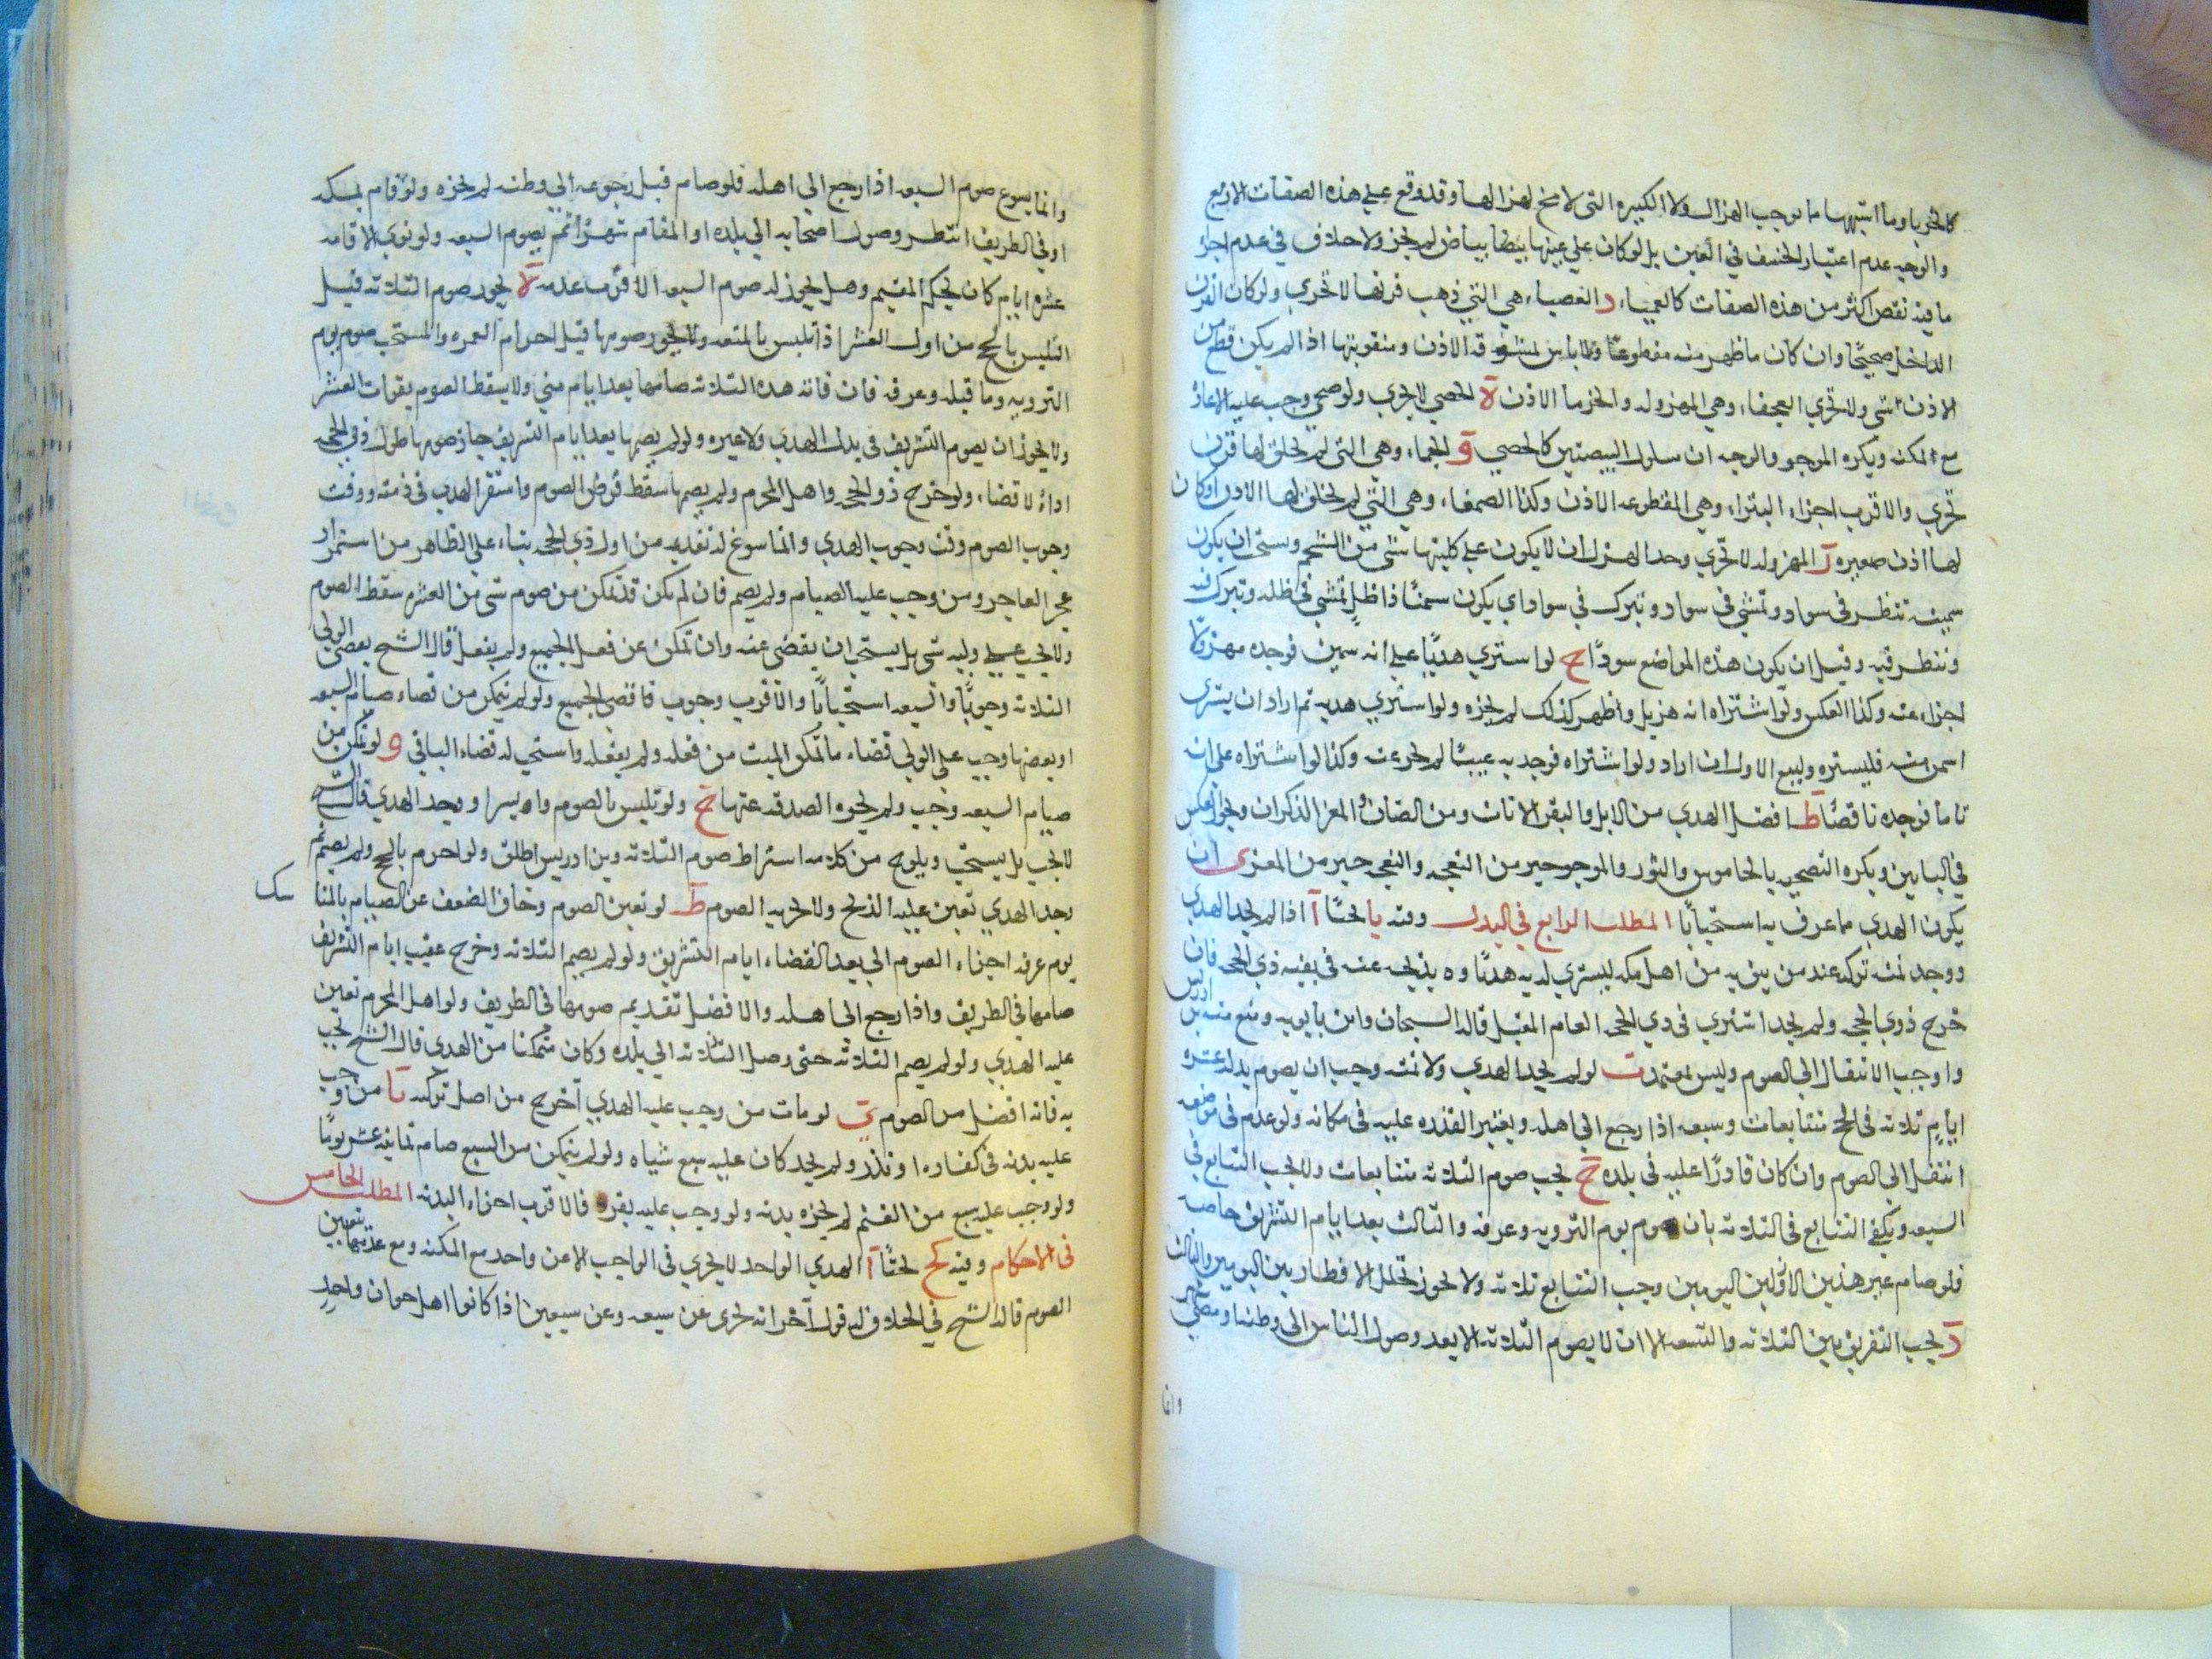 كالجربا وما اشبهها مما يوجب الهزال ولا الكبيره التى لا مخ لهزالها وقد وقع على هذه الصفات الاربع
والوجه عدم اعتبار الخسف في العين بل لو كان على عينها بيضا بياض لم يجز ولا خلاف في عدم اجزا
ما فيه نقص اكثر من هذه الصفات كالعمياء د العضباء هي التي ذهب قرنها لا تجزي ولو كان القرن
الداخل صحيحًا وان كان ما ظهر منه مقطوعًا ولا باس بمشقوقه الاذن ومثقوبتها اذا لم يكن قطع من
الاذن شى ولا تجزي العجفاء وهي المهزوله والخزما الاذن ه الخصي لا يجزي ولو ضحي وجب عليه الاعاده
مع المكنه ويكره الموجو والوجه ان مسلول البيضتين كالخصي و الجماء وهي التى لم يخلق لها قرن
تجزي والاقرب اجزاء البتراء وهي المقطوعه الاذن وكذا الصمعاء وهي التي لم يخلق لها الاذن او كان
لها اذن صغيره ز المهزوله لا تجزي وحد الهزل ان لا يكون على كليتها شى من الشحم ويستحب ان يكون
سمينه تنظر في سواد وتمشي في سواد وتبرك في سواد اي يكون سمنًا ذا ظل تمشي في ظله وتبرك فيه
وتنظر فيه وقيل ان يكون هذه المواضع سودًا ح لو اشتري هديًا على انه سمين فوجده مهزولًا
اجزاء عنه وكذا العكس ولو اشتراه انه هزيل وظهر كذلك لم يجزه ولو اشتري هديه ثم اراد ان يشترى
اسمن منه فليشتره وليبع الاول ان اراد ولو اشتراه فوجد به عيبًا لم يجز عنه وكذا لو اشتراه على انه
تاما فوجده ناقصًا ط افضل الهدي من الابل والبقر الاناث ومن الضان والمعز الذكران ويجوز العكس
في البابين ويكره التضحيه بالجاموس والثور والموجو خير من النعجه والنعجه خير من المعزى ان
يكون الهدي مما عرف به استحبابًا المطلب الرابع في البدل وفيه يا بحثًا آ اذا لم يجد الهدي
ووجد ثمنه تركه عند من يثق به من اهل مكه ليشتري له به هديًا ويذبحه عنه في بقيه ذي الحجه فان
خرج ذو الحجه ولم يجد اشتري في ذي الحجه العام المقبل قاله الشيخان وابن بابويه ومنع منه بن ادريس
واوجب الانتقال الى الصوم وليس بمعتمد ب لو لم يجد الهدي ولا ثمنه وجب ان يصوم بدله عشره
ايام ثلاثه في الحج متتابعات وسبعه اذا رجع الي اهله ويعتبر القدره عليه في مكانه ولو عدم في موضعه
انتقل الى الصوم وان كان قادرًا عليه في بلده ج يجب صوم الثلاثه متتابعات ولا يجب التتابع في
السبعه ويكفي التتابع في الثلاثه بان يصوم يوم الترويه وعرفه والثالث بعد ايام التشريق خاصه
فلو صام غير هذين الاولين اليومين وجب التتابع ثلاثه ولا يجوز تخلل الافطار بين اليومين والثالث
د يجب التفريق بين الثلاثه والتسعه الا ان لا يصوم الثلاثه الا بعد وصول الناس الى وطنه او مضي شهر
وانما
وانما يسوع صوم السبعه اذا رجع الي اهله فلو صام قبل رجوعه الي وطنه لم يجزه ولو اقام بمكه
او في الطريق انتظر وصول اصحابه الي بلده او المقام شهرًا ثم يصوم السبعه ولو نوي الاقامه
عشره ايام كان بحكم المقيم وهل يجوز له صوم السبعه الاقرب عدمه ه لا يجوز صوم الثلاثه قبل
التلبس بالحج من اول العشر اذا تلبس بالمتعه ولا يجوز صومها قبل احرام العمره والمستحب صوم يوم
الترويه وما قبله وعرفه فان فاته هذه الثلاثه صامها بعد ايام منى ولا يسقط الصوم بفوات العشر
ولا يجوز ان يصوم التشريق في بدل الهدي ولا غيره ولو لم يصمها بعد ايام التشريق جاز صومها طول ذي الحجه
اداءً لا قضاء ولو خرج ذو الحجه واهل المحرم ولم يصمها سقط فرض الصوم واستقر الهدي في ذمته ووقت
وجوب الصوم وقت وجوب الهدي وانما سوغ له تقديمه من اول ذي الحجه بناء على الظاهر من استمرار
عجز العاجز ومن وجب عليه الصيام ولم يصم فان لم يكن قد تمكن من صوم شى من العشره سقط الصوم
ولا يجب على وليه شى بل يستحب ان يقضى عنه وان تمكن عن فعل الجميع ولم يفعل قال الشيخ يقضى الولي
الثلاثه وجوبًا والسبعه استحبابًا والاقرب وجوب قضاء الجميع ولو لم يتمكن من قضاء صيام السبعه
او بعضها وجب على الولي قضاء ما تمكن الميت من فعله ولم يفعله واستحب له قضاء الباقي و لو تمكن من
صيام السبعه وجب ولم يجزه الصدقه عنها ح ولو تلبس بالصوم وايسر او وجد الهدي قال الشيخ
لا يجب بل يستحب ويلوح من كلامه اشتراط صوم الثلاثه وبن ادريس اطلق ولو احرم بالحج ولم يصم ثم
وجد الهدي تعين عليه الذبح ولا يجزيه الصوم ط لو تعين الصوم وخاف الضعف عن الصيام بالمناسك
يوم عرفه اجزاء الصوم الي بعد انقضاء ايام التشريق ولو لم يصم الثلاثه وخرج عقيب ايام التشريق
صامها في الطريق واذا رجع الى اهله والافضل تقديم صومها في الطريق ولو اهل المحرم تعين
عليه الهدي ولو لم يصم الثلاثه حتى وصل الي بلده وكان متمكنا من الهدى قال الشيخ يجب
به فانه افضل من الصوم ي لو مات من وجب عليه الهدي أخرج من اصل تركته يا من وجب
عليه بدنه في كفاره او نذر ولم يجد كان عليه سبع شياه ولو لم يتمكن من السبع صام ثمانيه عشر يومًا
ولو وجب عليه سبع من الغنم لم يجزه بدنه ولو وجب عليه بقره فالاقرب اجزاء البدنه المطلب الخامس
فى الاحكام وفيه كح بحثًا آ الهدي الواحد لا يجزي فى الواجب الا عن واحد مع المكنه ومع عدمها يتعين
الصوم قاله الشيخ في الخلاف وله قول آخر انه يجزى عن سبعه وعن سبعين اذا كانوا اهل خوان واحدٍ